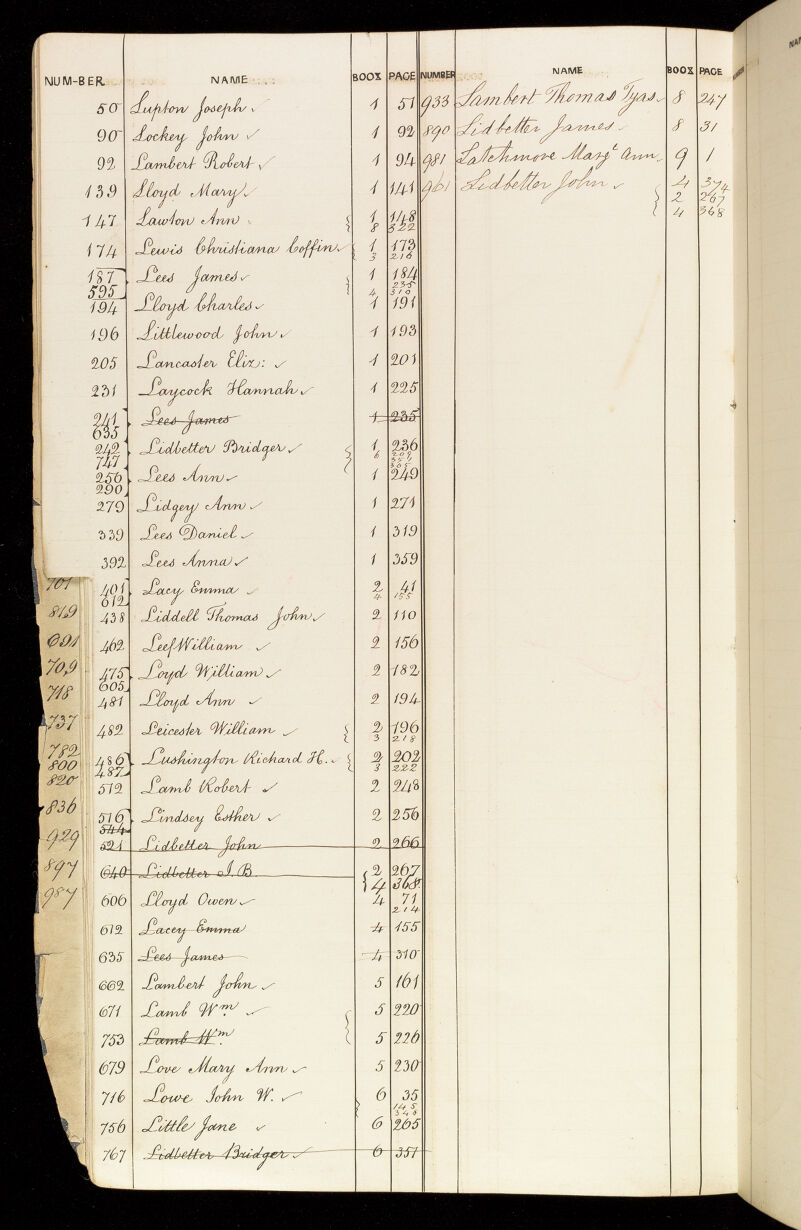 NUM-BER NAME BOOK PAGE
50 Lupton Joseph 1 51
90 Lockey John 1 92
92 Lambert Robert 1 94
139 Lloyd Mary 1 141
147 Lawton Ann 1 148
8 322
174 Lewis Christiana Coffin 1 173
3 216
187 Lees James 1 184
235
595 4 310
194 Lloyd Charles 1 191
196 Littlewood John 1 193
205 Lancaster Eliz: 1 201
231 Laycock Hannah 1 225
241 Lees James 1 235
635
242 Lidbetter Bridger 1 236
747 6
256 Lees Ann 1 249
290
279 Lidgey Ann 1 271
339 Lees Daniel 1 319
392 Lees Anna 1 359
401 Lacy Emma 2 41
612 4 155
438 Liddell Thomas John 2 110
462 Leef William 2 156
475 Loyd William 2 182
605
481 Lloyd Ann 2 194
482 Leicester William 2 196
3 218
486 Lushington Richard H. 2 202
487 3 222
512 Lamb Robert 2 248
516 Lindsey Esther 2 256
544
521 Lidbetter John 2 266
640 Lidbetter J. B. 2 267
4 368
606 Lloyd Owen 4 71
214
612 Lacey Emma 4 155
635 Lees James 4 310
662 Lambert John 5 161
671 Lamb Wm 5 220
753 Lamb Wm 5 226
679 Love Mary Ann 5 230
716 Lowe John W. 6 35
145
340
756 Little Jane 6 265
767 Lidbetter Bridger 6 351
NUMBER NAME BOOK PAGE
933 Lambert Thomas Tyas 8 247
890 Lidbetter James 8 31
981 Latchmore Margt Ann 9 1
961 Lidbetter John 4 374
2 267
4 368
701
819
691
709
718
737
782
800
820
836
929
897
987